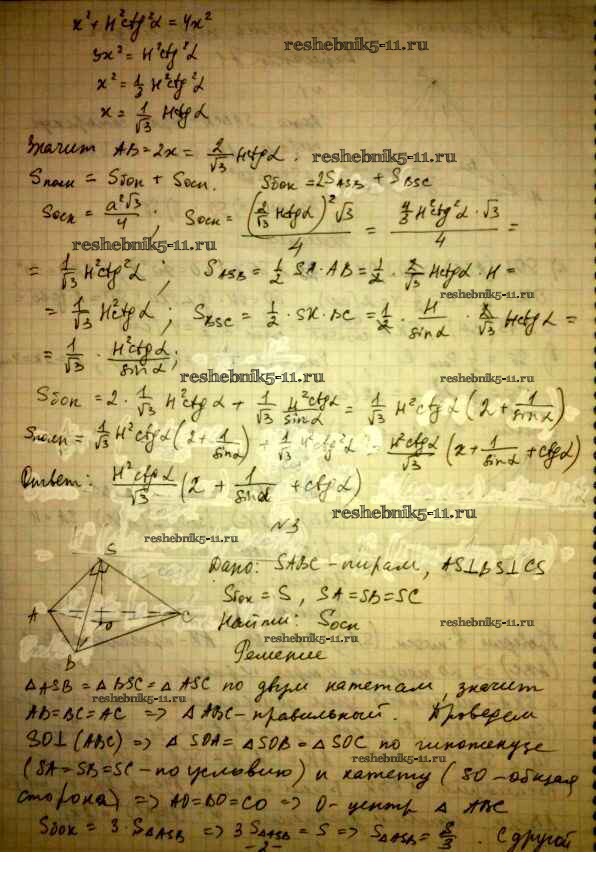 x² + H²ctg²α = 4x²
3x² = H²ctg²α
reshebnik5-11.ru
x² = 1/3 H²ctg²α
x = 1/√3 Hctgα
Значит AB = 2x = 2/√3 Hctgα.
reshebnik5-11.ru
Sполн = Sбок + Sосн. Sбок = 2S_ASB + S_BSC
Sосн = a²√3/4; Sосн = (2/√3 Hctgα)²√3/4 = 4/3 H²ctg²α·√3/4 =
reshebnik5-11.ru
= 1/√3 H²ctg²α; S_ASB = 1/2 SA·AB = 1/2 · 2/√3 Hctgα · H =
reshebnik5-11.ru
= 1/√3 H²ctgα; S_BSC = 1/2 · SK · BC = 1/2 · H/sinα · 2/√3 Hctgα =
= 1/√3 · H²ctgα/sinα;
reshebnik5-11.ru
reshebnik5-11.ru
Sбок = 2 · 1/√3 H²ctgα + 1/√3 H²ctgα/sinα = 1/√3 H²ctgα (2 + 1/sinα)
Sполн = 1/√3 H²ctgα (2 + 1/sinα) + 1/√3 H²ctg²α = H²ctgα/√3 (2 + 1/sinα + ctgα)
reshebnik5-11.ru
Ответ: H²ctgα/√3 (2 + 1/sinα + ctgα)
reshebnik5-11.ru
N3
reshebnik5-11.ru
S
A
O
C
B
Дано: SABC - пирам, AS⊥BS⊥CS
Sбок = S, SA = SB = SC
Найти: Sосн
reshebnik5-11.ru
reshebnik5-11.ru
Решение
△ASB = △BSC = △ASC по двум катетам, значит
reshebnik5-11.ru
AB = BC = AC => △ABC - правильный. Проведем
SO⊥(ABC) => △SOA = △SOB = △SOC по гипотенузе
(SA = SB = SC - по условию) и катету (SO - общая
сторона) => AO = BO = CO => O - центр △ABC
Sбок = 3·S△ASB => 3S△ASB = S => S△ASB = S/3. С другой
-2-